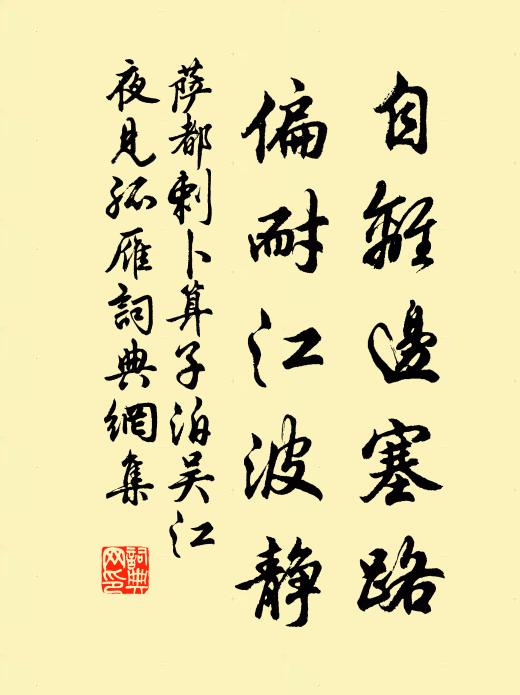 自離邊塞路
偏耐江波静
萨都剌卜算子泊吴江
夜見孤雁詞典網集
詞典网印